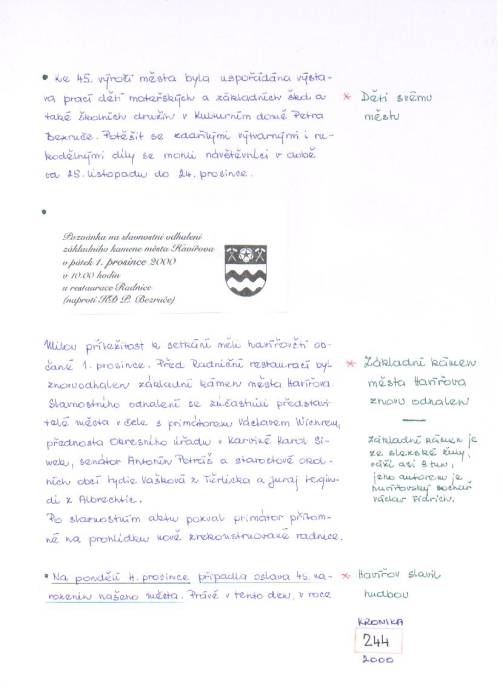 • Ke 45. výročí města byla uspořádána výsta-
va prací dětí mateřských a základních škol a
také školních družin v Kulturním domě Petra
Bezruče. Potěšit se zdařilými výtvarnými i ru-
kodělnými díly se mohli návštěvníci v době
od 28. listopadu do 24. prosince.
* Děti svému
městu
•
Pozvánka na slavnostní odhalení
základního kamene města Havířova
v pátek 1. prosince 2000
v 10.00 hodin
u restaurace Radnice
(naproti KD P. Bezruče)
Milou příležitost k setkání měli havířovští ob-
čané 1. prosince. Před Radniční restaurací byl
znovuodhalen základní kámen města Havířova
Slavnostního odhalení se zúčastnili představi-
telé města v čele s primátorem Václavem Wicherem,
přednosta Okresního úřadu v Karviné Karol Si-
wek, senátor Antonín Petráš a starostové okol-
ních obcí Lydie Vašková z Těrlicka a Juraj
z Albrechtic.
Po slavnostním aktu pozval primátor přítom-
né na prohlídku nově zrekonstruované radnice.
* Základní kámen
města Havířova
znovu odhalen
—
Základní kámen je
ze slezské žuly,
váží asi 8 tun,
jeho autorem je
havířovský sochař
Václav Fidrich.
• Na pondělí 4. prosince připadla oslava 45. na-
rozenin našeho města. Právě v tento den, v roce
* Havířov slavil
hudbou
KRONIKA
244
2000